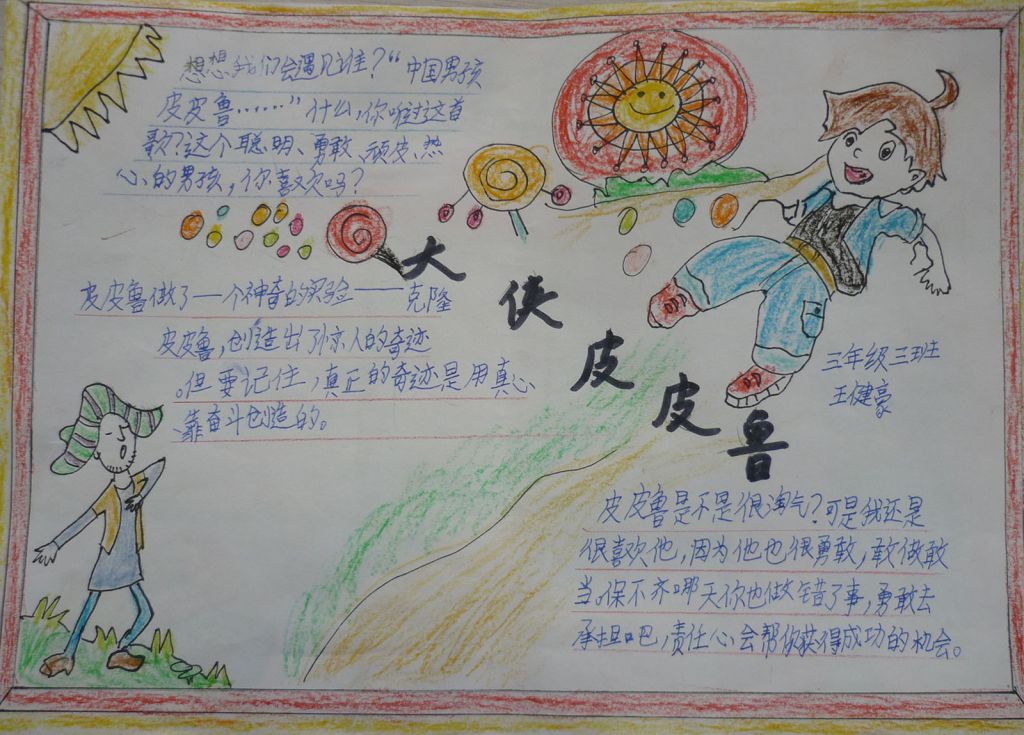 想想我们会遇见谁?“中国男孩
皮皮鲁……”什么,你听过这首
歌?这个聪明、勇敢、顽皮、热
心的男孩,你喜欢吗?
大侠皮皮鲁
皮皮鲁做了一个神奇的实验——克隆
皮皮鲁,创造出了惊人的奇迹
。但要记住,真正的奇迹是用真心
、靠奋斗创造的。
三年级三班
王健豪
皮皮鲁是不是很淘气?可是我还是
很喜欢他,因为他也很勇敢,敢做敢
当。保不齐哪天你也做错了事,勇敢去
承担吧,责任心会帮你获得成功的机会。